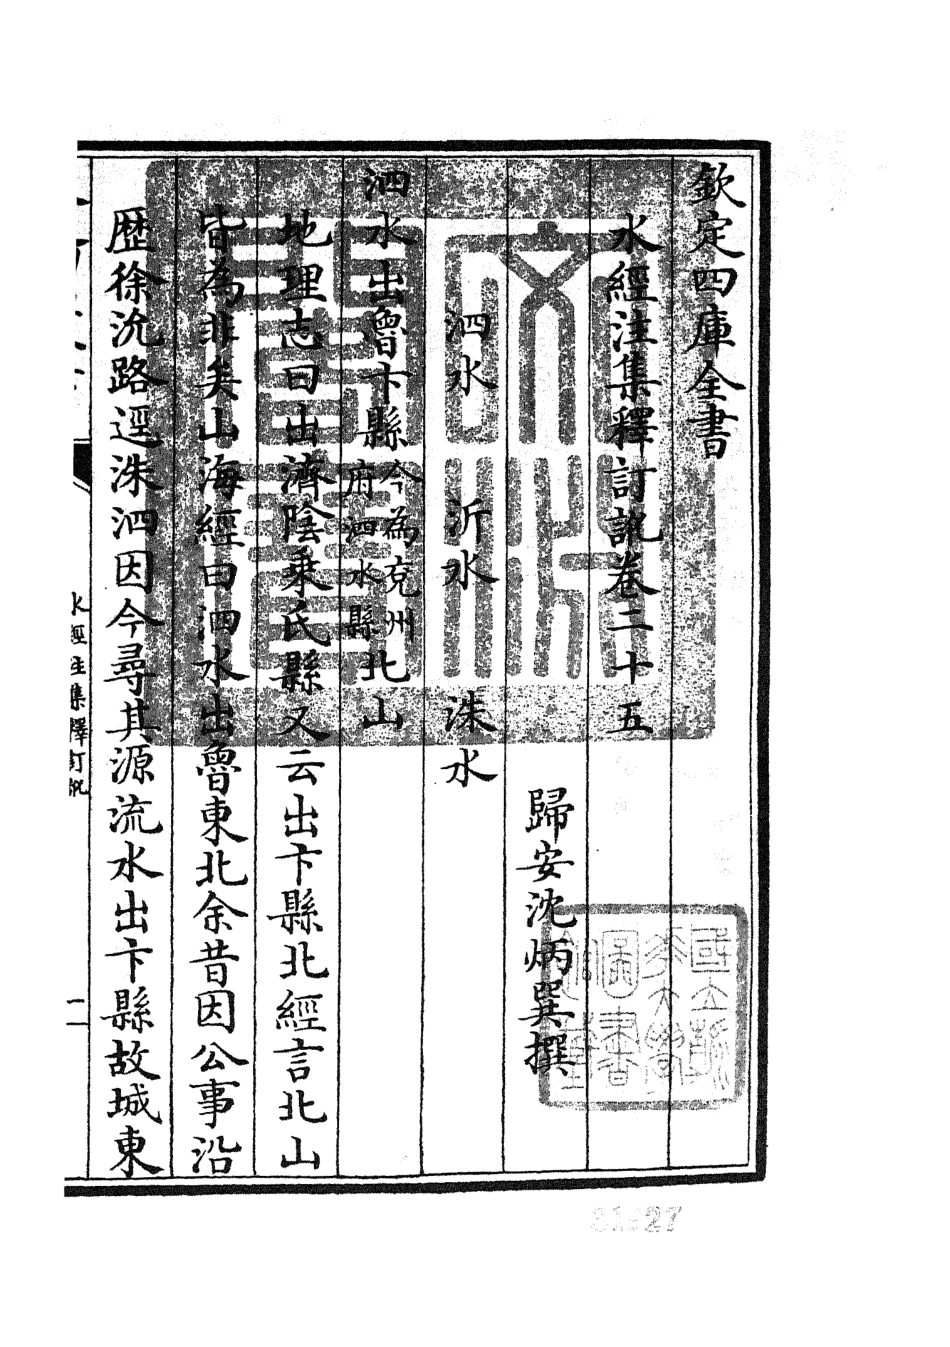 欽定四庫全書
水經注集釋訂訛卷二十五
歸安沈炳巽撰
泗水 沂水 洙水
泗水出魯卞縣今為兗州府泗水縣北山
地理志曰出濟陰乗氏縣又云出卞縣北經言北山
皆為非矣山海經曰泗水出魯東北余昔因公事沿
歴徐沇路逕洙泗因今尋其源流水出卞縣故城東
水經注集釋訂訛
一